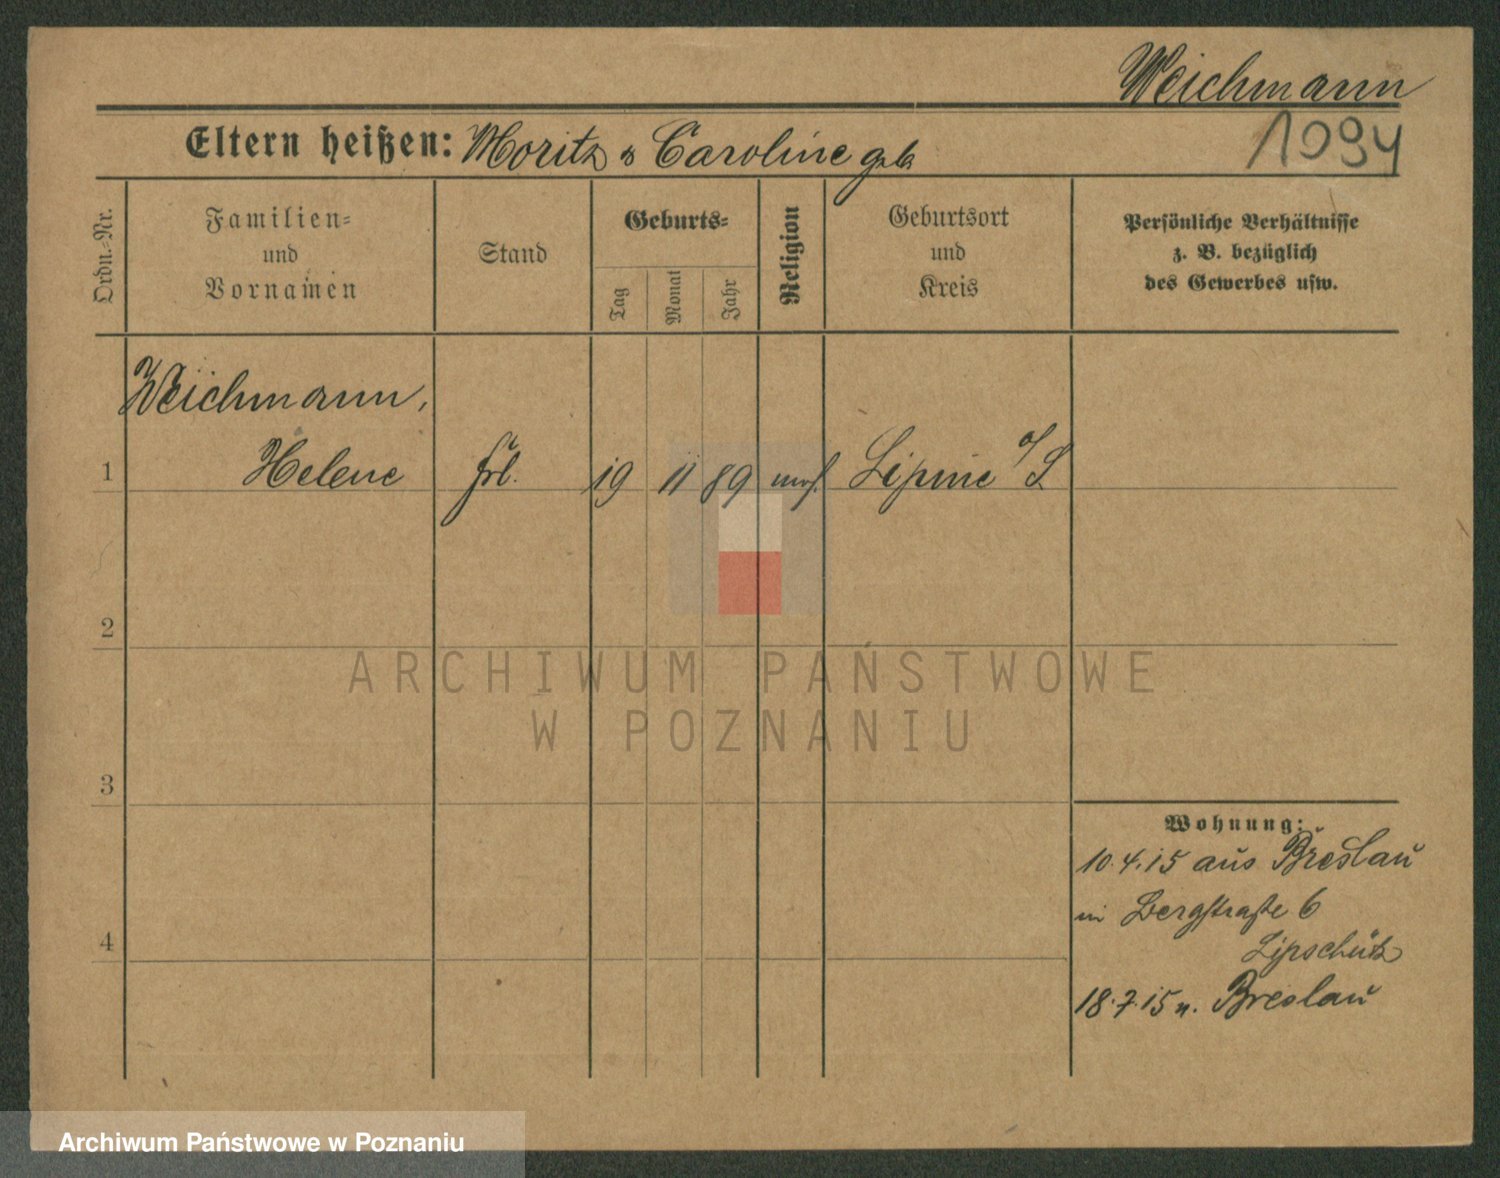 Weichmann
1094
Eltern heißen: Moritz u Caroline geb
Ordn.-Nr.
Familien-
und
Vornamen
Stand
Geburts-
Tag
Monat
Jahr
Religion
Geburtsort
und
Kreis
Persönliche Verhältnisse
z. B. bezüglich
des Gewerbes usw.
Weichmann,
1 Helene Frl. 19 11 89 mos. Lipine O/S
2
3
4
Wohnung:
10.4.15 aus Breslau
in Bergstraße 6
Lipschütz
18.7.15 n. Breslau
ARCHIWUM PAŃSTWOWE
W POZNANIU
Archiwum Państwowe w Poznaniu